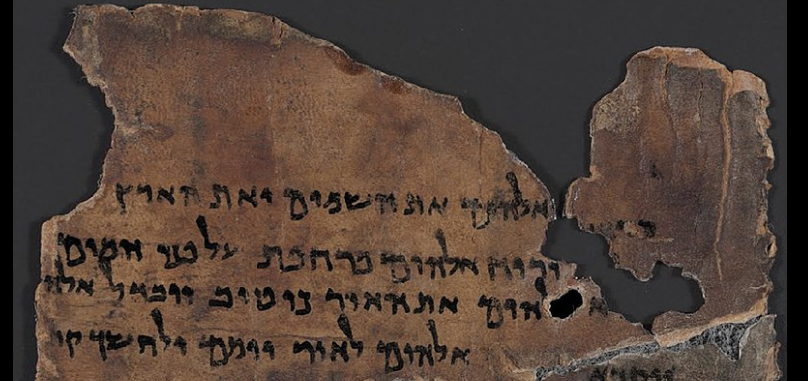 אלהים את השמים ואת הארץ
ורוח אלהים מרחפת על פני המים
את האור כי טוב ויבדל אלהי
אלהים לאור יומם ולחשך קר